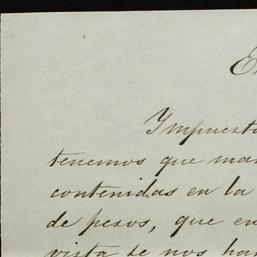 Impuesto
tenemos que man
contenidas en la
de pesos, que en
vista se nos ha